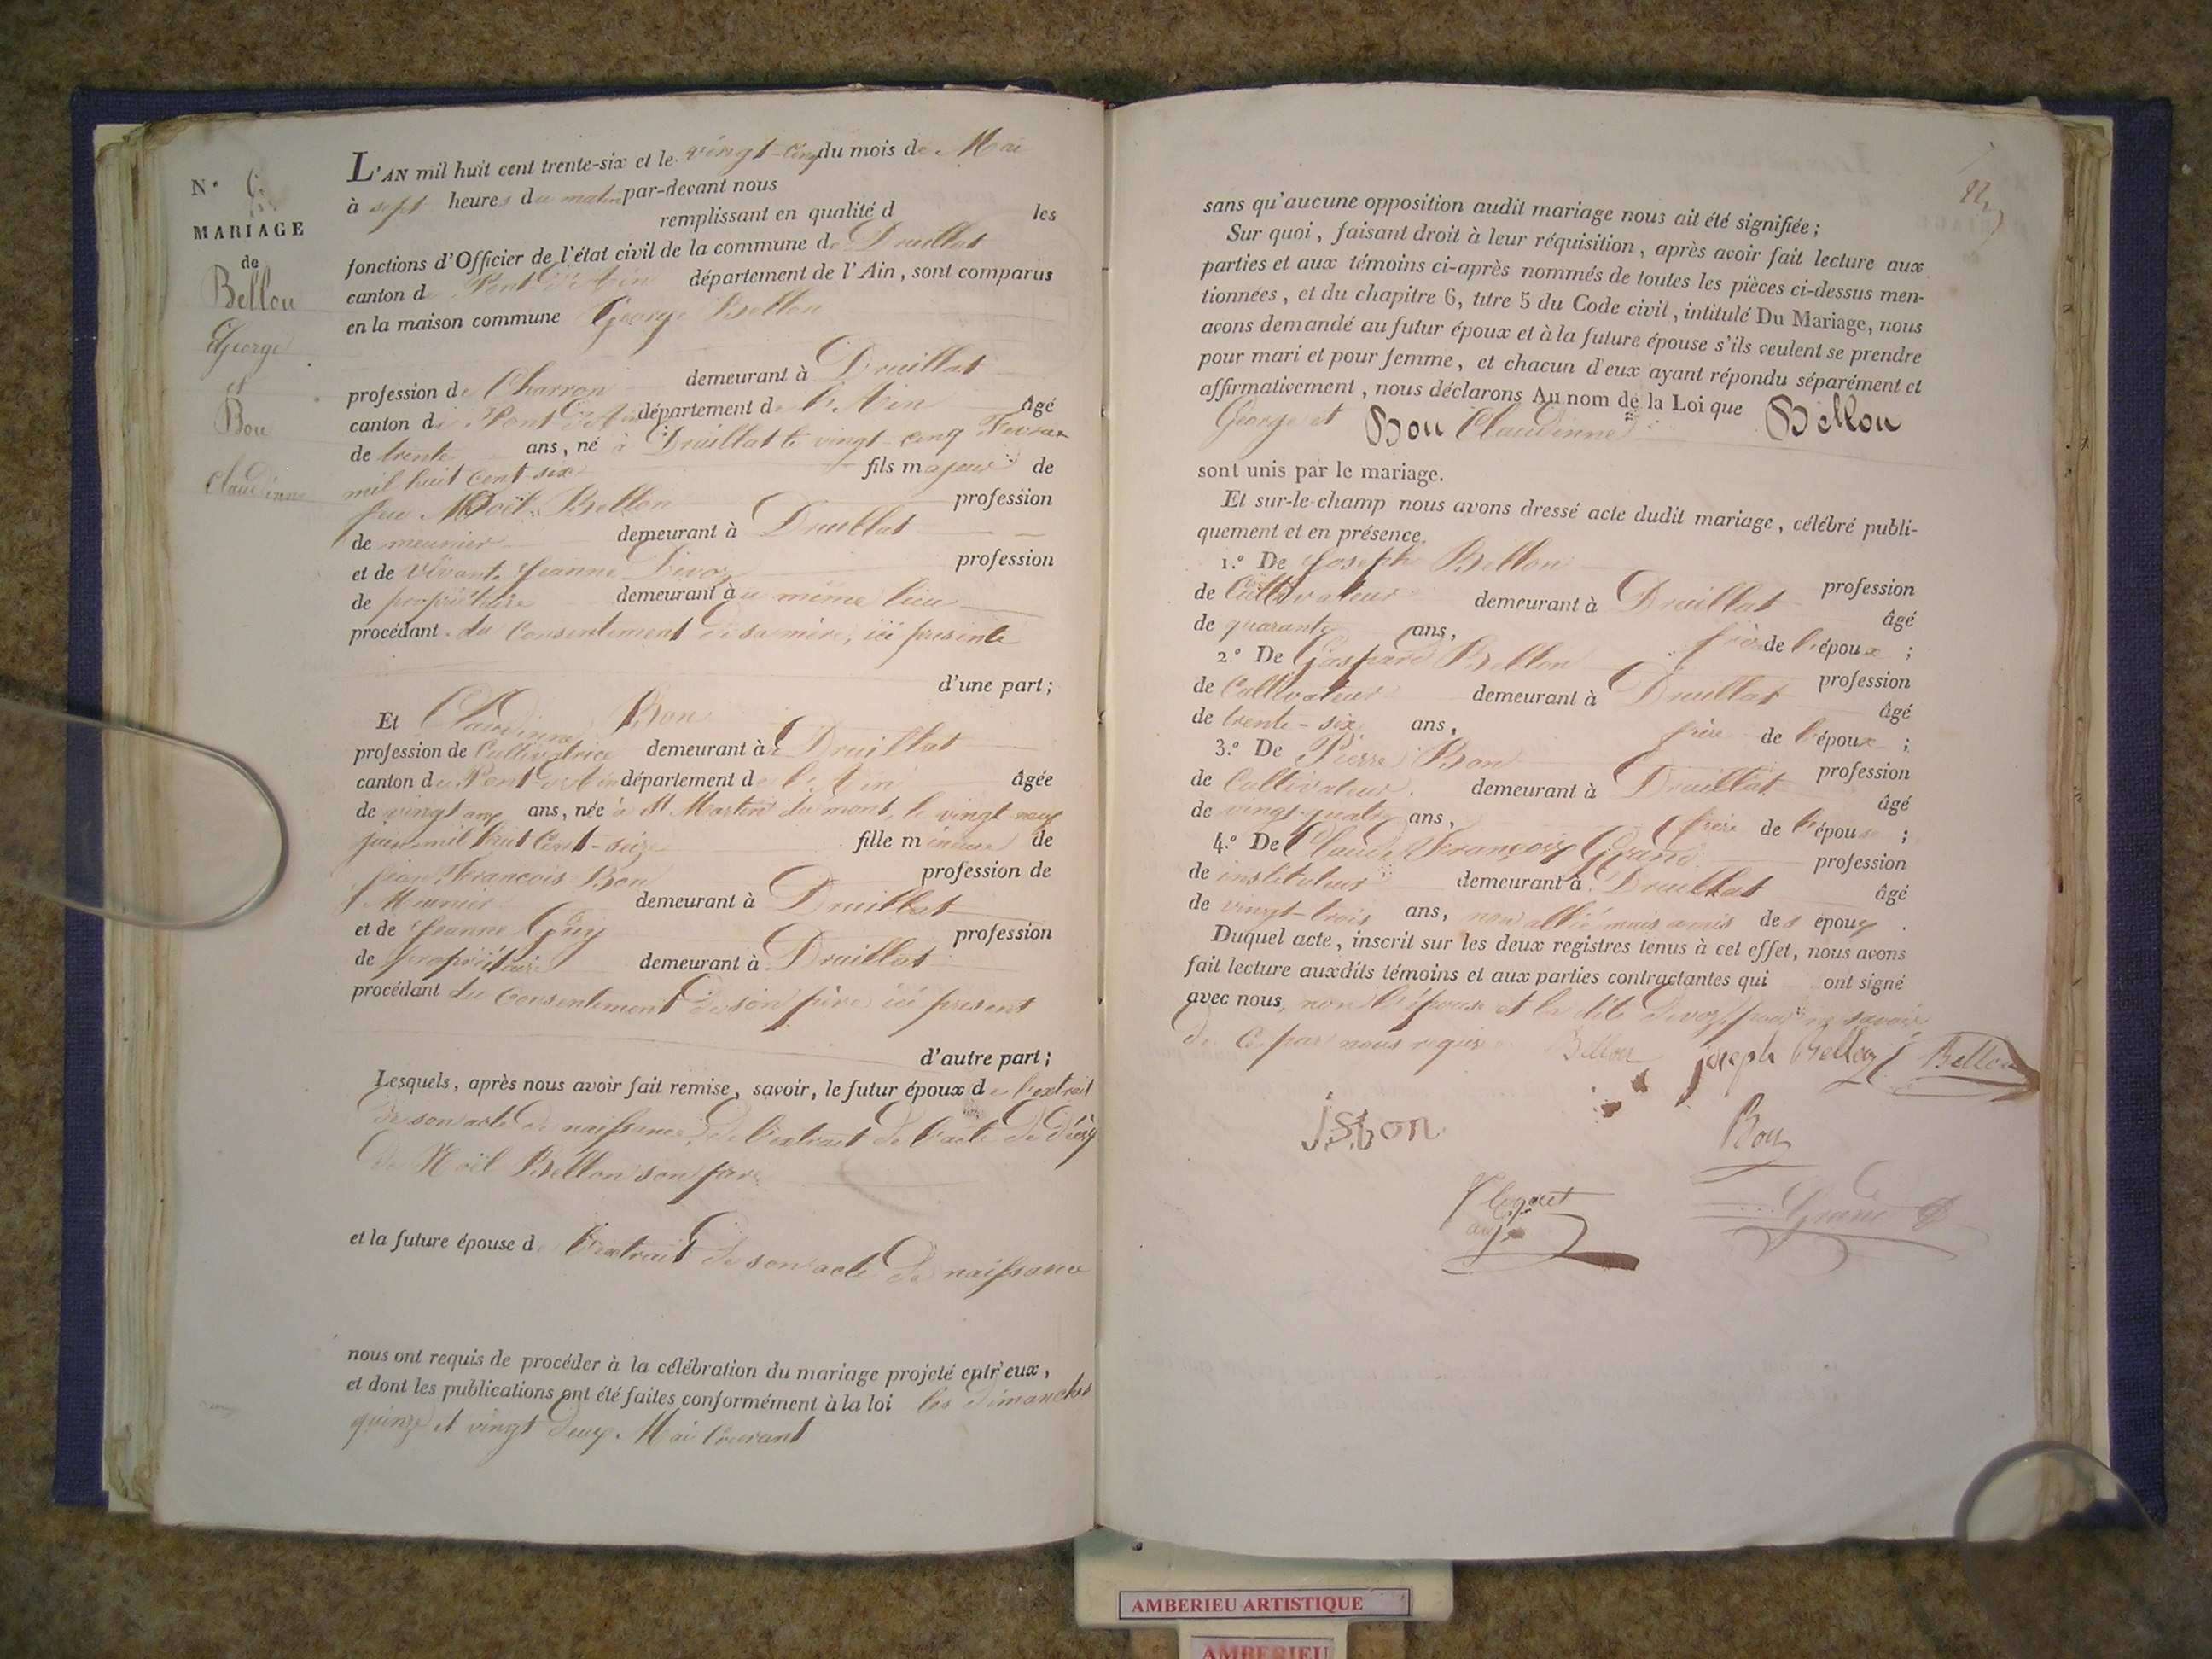 N.°
MARIAGE
de
Bellon
George
et
Bon
Claudinne
L'AN mil huit cent trente-six et le vingt-cinq du mois de Mai
à sept heures du matin par-devant nous
remplissant en qualité d les
fonctions d'Officier de l'état civil de la commune de Druillat
canton de Pont-d'Ain département de l'Ain, sont comparus
en la maison commune George Bellon
profession de Charron demeurant à Druillat
canton de Pont d'Ain département de l'Ain âgé
de trente ans, né à Druillat le vingt-cinq Fevrier
mil huit cent six fils majeur de
feu Noël Bellon profession
de meunier demeurant à Druillat
et de vivante Jeanne Divoz profession
de propriétaire demeurant au même lieu
procédant du consentement de sa mère, ici presente
d'une part;
Et Claudinne Bon
profession de Cultivatrice demeurant à Druillat
canton de Pont-d'Ain département de l'Ain âgée
de vingt ans, née à St Martin du mont, le vingt neuf
juin mil huit Cent-seize fille mineure de
jean François Bon profession de
Meunier demeurant à Druillat
et de Jeanne Guy profession
de propriétaire demeurant à Druillat
procédant du consentement de son père ici présent
d'autre part;
Lesquels, après nous avoir fait remise, savoir, le futur époux de l'extrait
de son acte de naissance, de l'extrait de l'acte de décès
de Noël Bellon son père
et la future épouse de l'extrait de son acte de naissance
nous ont requis de procéder à la célébration du mariage projeté entr'eux,
et dont les publications ont été faites conformément à la loi les dimanches
quinze et vingt deux Mai Courant
sans qu'aucune opposition audit mariage nous ait été signifiée;
Sur quoi, faisant droit à leur réquisition, après avoir fait lecture aux
parties et aux témoins ci-après nommés de toutes les pièces ci-dessus men-
tionnées, et du chapitre 6, titre 5 du Code civil, intitulé Du Mariage, nous
avons demandé au futur époux et à la future épouse s'ils veulent se prendre
pour mari et pour femme, et chacun d'eux ayant répondu séparément et
affirmativement, nous déclarons Au nom de la Loi que Bellon
George et Bon Claudinne
sont unis par le mariage.
Et sur-le-champ nous avons dressé acte dudit mariage, célébré publi-
quement et en présence,
1.° De Joseph Bellon profession
de Cultivateur demeurant à Druillat âgé
de quarante ans, frère de l'époux;
2.° De Gaspard Bellon profession
de Cultivateur demeurant à Druillat âgé
de trente-six ans, frère de l'époux;
3.° De Pierre Bon profession
de Cultivateur demeurant à Druillat âgé
de vingt-quatre ans, frère de l'épouse;
4.° De Claude François Grand profession
de instituteur demeurant à Druillat âgé
de vingt-trois ans, non allié mais amis des époux.
Duquel acte, inscrit sur les deux registres tenus à cet effet, nous avons
fait lecture auxdits témoins et aux parties contractantes qui ont signé
avec nous, non l'épouse et la dite Divoz pour ne savoir
de ce par nous requis
Bellon joseph Bellon Bellon
jsbon Bon
Grand
AMBERIEU ARTISTIQUE
AMBERIEU